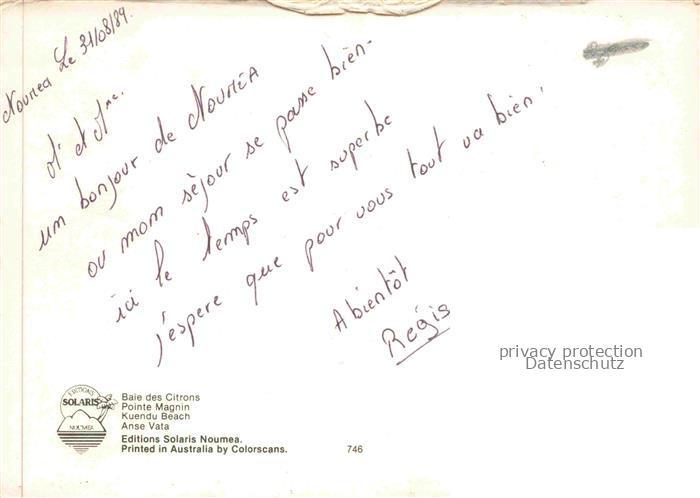 Noumea Le 31/08/89.
M. et Mme.
un bonjour de NOUMÉA
ou mom séjour se passe bien.
ici le temps est superbe
j'espere que pour vous tout va bien.
A bientôt
Régis
privacy protection
Datenschutz
EDITIONS
SOLARIS
NOUMEA
Baie des Citrons
Pointe Magnin
Kuendu Beach
Anse Vata
Editions Solaris Noumea.
Printed in Australia by Colorscans.
746